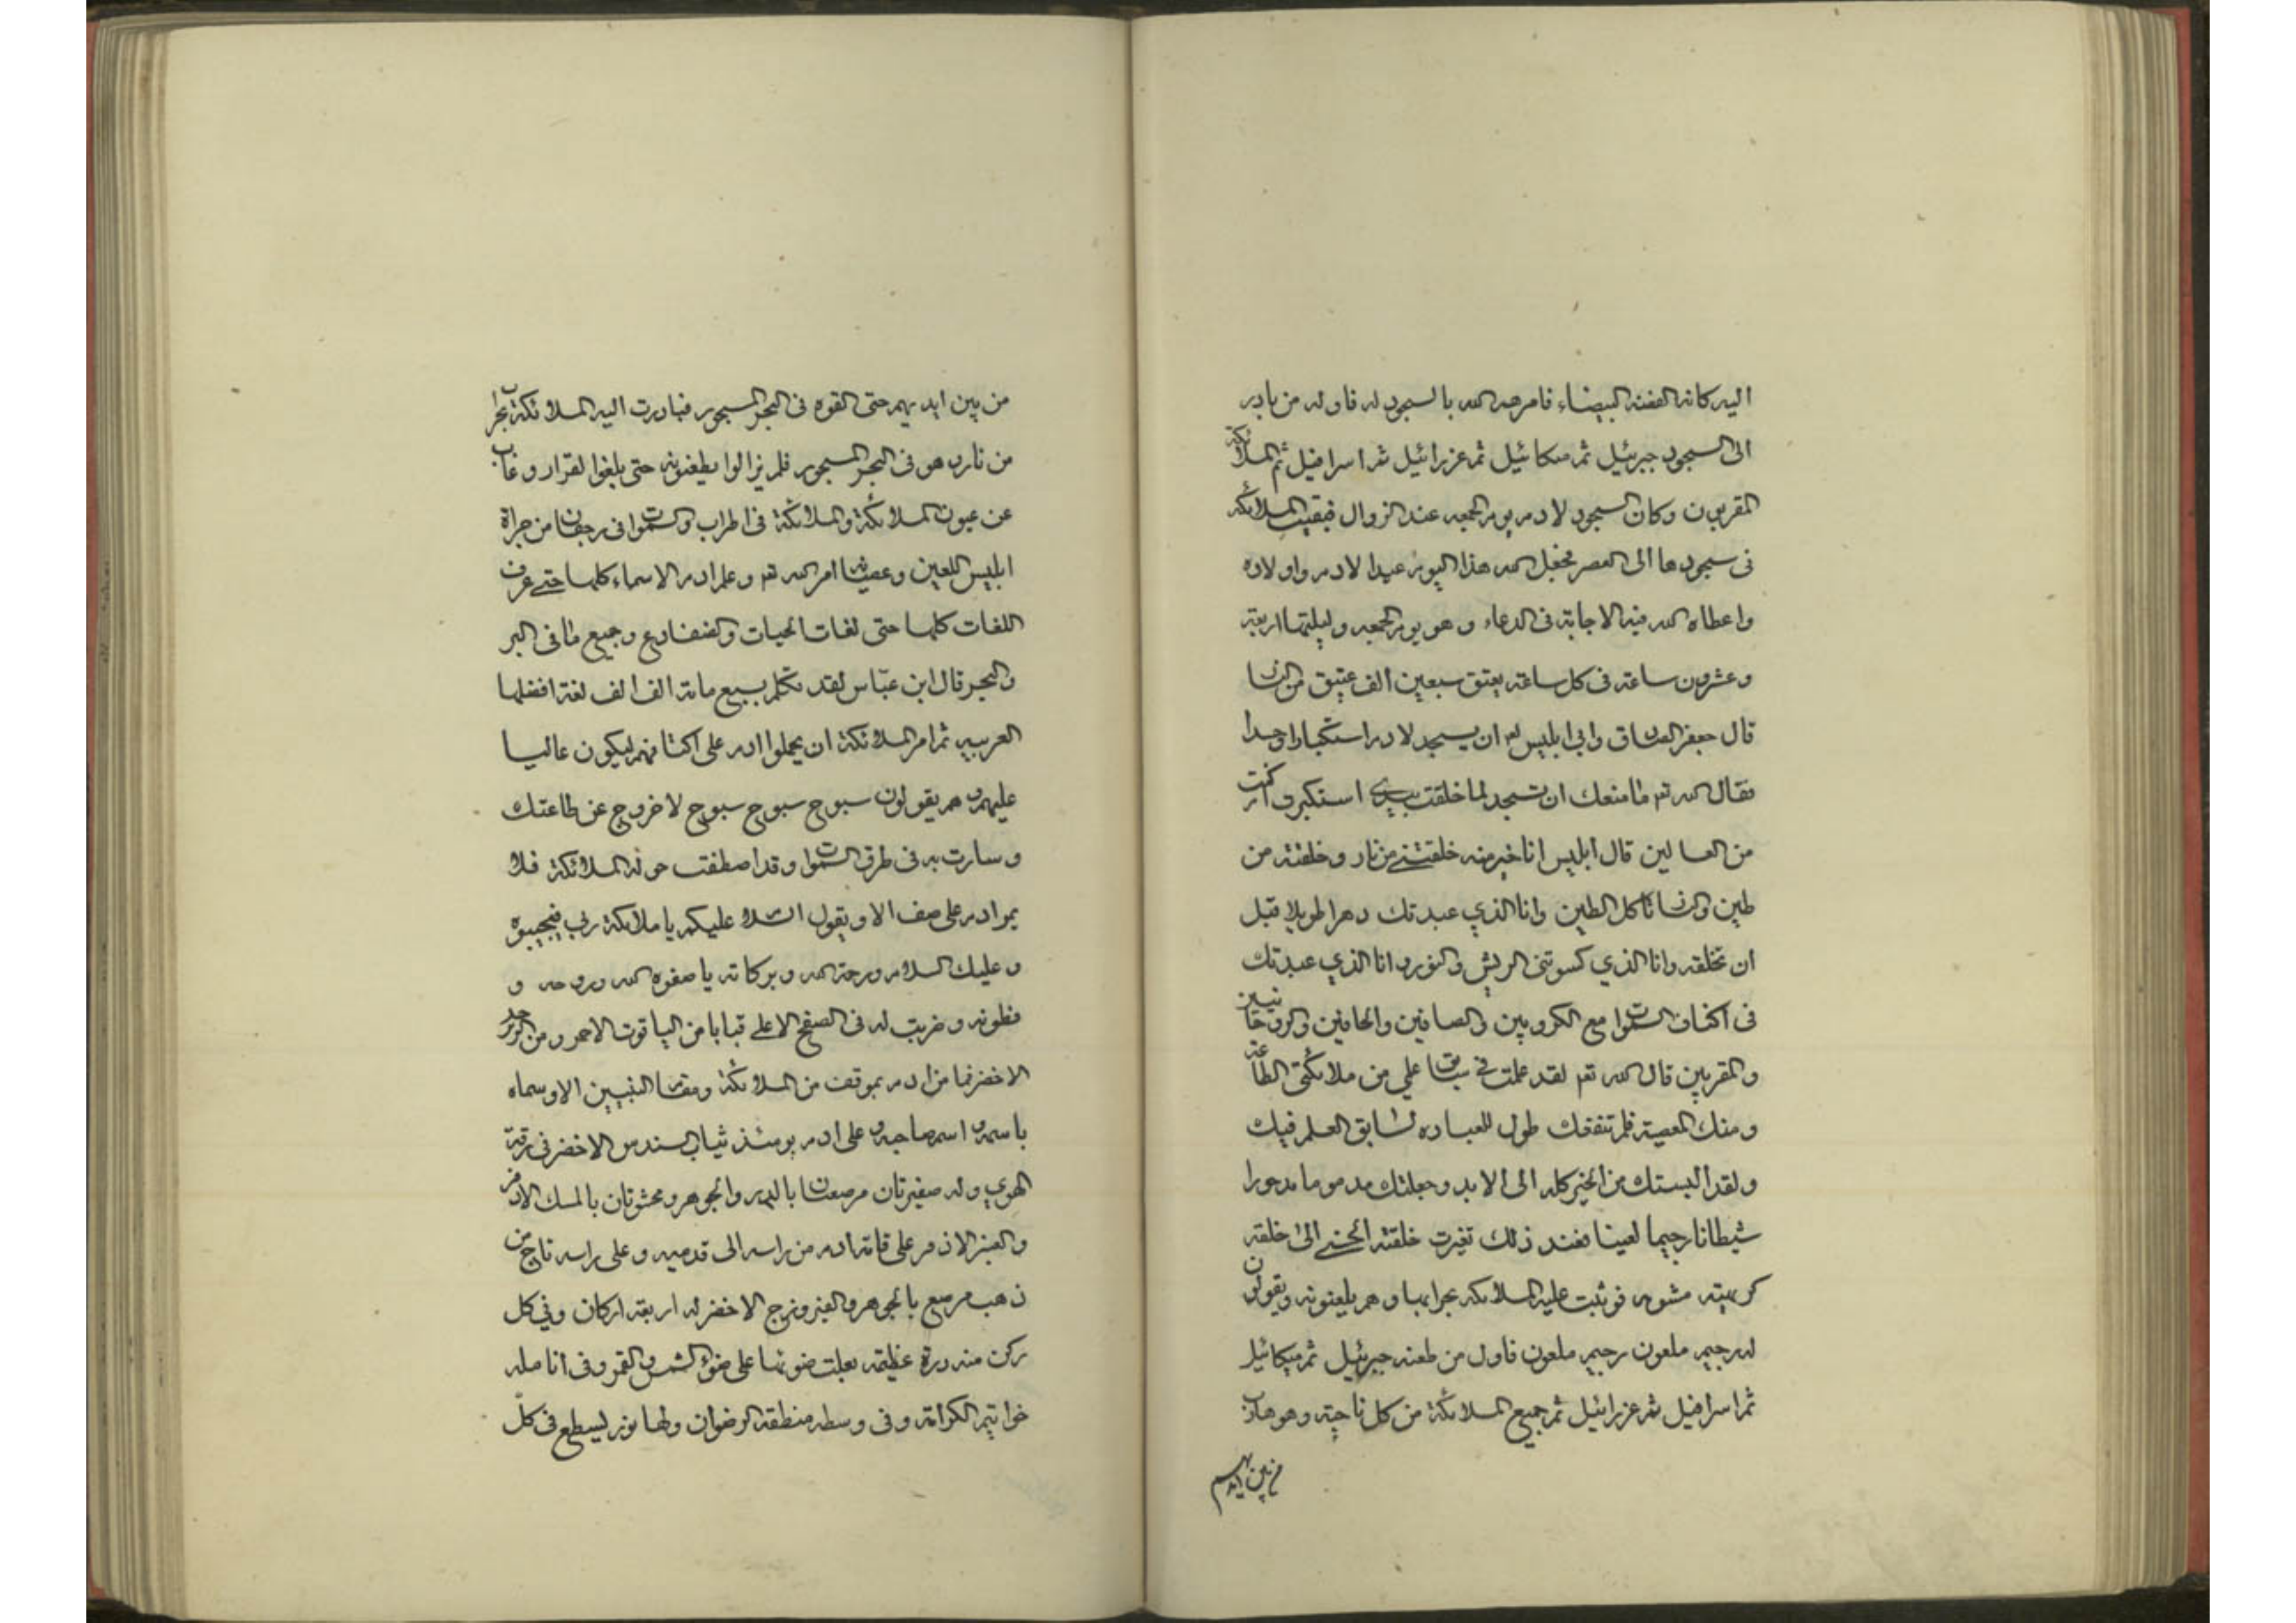 اليه كانه الفضة البيضاء فامرهم الله بالسجود له فاول من بادر
الى السجود جبرئيل ثم ميكائيل ثم عزرائيل ثم اسرافيل ثم الملائكة
المقربون وكان السجود لادم يوم الجمعه عند الزوال فبقيت الملائكه
فى سجودها الى العصر فجعل الله هذا اليوم عيدا لادم واولاده
واعطاه الله فيه الاجابة فى الدعاء وهو يوم الجمعه وليلتها اربعة
وعشرون ساعة فى كل ساعة يعتق سبعين الف عتيق من النار
قال جعفر الصادق وابى ابليس لع ان يسجد لادم استكبارا وحسدا
فقال الله تع ما منعك ان تسجد لما خلقت بيدي استكبرت ام كنت
من العالين قال ابليس انا خير منه خلقتني من نار وخلقته من
طين والنار تاكل الطين وانا الذي عبدتك دهرا طويلا قبل
ان تخلقه وانا الذي كسوتنى الريش والنور وانا الذي عبدتك
فى اكناف السموات مع الكروبين والصافين والحافين والروحانيين
والمقربين قال الله تع لقد علمت في سابق علمي من ملائكتى الطاعة
ومنك المعصية فلم تنفعك طول العباده لسابق العلم فيك
ولقد ابلستك من الخير كله الى الابد وجعلتك مذموما مدحورا
شيطانا رجيما لعينا فعند ذلك تغيرت خلقته الحسنى الى خلقة
كريهته مشومه فوثبت عليه الملائكه بحرابها وهم يلعنونه ويقولون
له رجيم ملعون رجيم ملعون فاول من طعنه جبرئيل ثم ميكائيل
ثم اسرافيل ثم عزرائيل ثم جميع الملائكة من كل ناحية وهو هارب
من بين ايديهم
من بين ايديهم حتى القوه فى البحر المسجور فبادرت اليه الملائكة بحراب
من نار وهو فى البحر المسجور فلم يزالوا يطعنونه حتى بلغوا القرار وغاب
عن عيون الملائكة والملائكة فى اطراب والسموات فى رجفان من جراة
ابليس اللعين وعصيانه امر الله تع وعلم ادم الاسماء كلها حتى عرف
اللغات كلها حتى لغات الحيات والضفادع وجميع ما فى البر
والبحر قال ابن عباس لقد تكلم بسبع مائة الف الف لغة افضلها
العربيه ثم امر الملائكة ان يحملوا ادم على اكتافهم ليكون عاليا
عليهم وهم يقولون سبوح سبوح سبوح لا خروج عن طاعتك
وسارت به فى طرق السموات وقد اصطفت حوله الملائكة فلا
يمر ادم على صف الا ويقول السلام عليكم يا ملائكة ربي فيجيبوه
وعليك السلام ورحمة الله وبركاته يا صفوه الله وروحه و
فطرته وضربت له فى الصفيح الاعلى قبابا من الياقوت الاحمر ومن الزبرجد
الاخضر فما مر ادم بموقف من الملائكة ومقام النبيين الا وسماه
باسمه واسم صاحبه وعلى ادم يومئذ ثياب السندس الاخضر فى رقة
الهوى وله ضفيرتان مرصعتان بالدر والجوهر ومحشوتان بالمسك الاذفر
والعنبر الاذفر على قامة ادم من راسه الى قدميه وعلى راسه تاج من
ذهب مرصع بالجوهر والفيروزج الاخضر له اربعة اركان وفي كل
ركن منه درة عظيمة يغلب ضوئها على ضوء الشمس والقمر وفى انامله
خواتيم الكرامة وفى وسطه منطقة الرضوان ولها نور يسطع فى كل